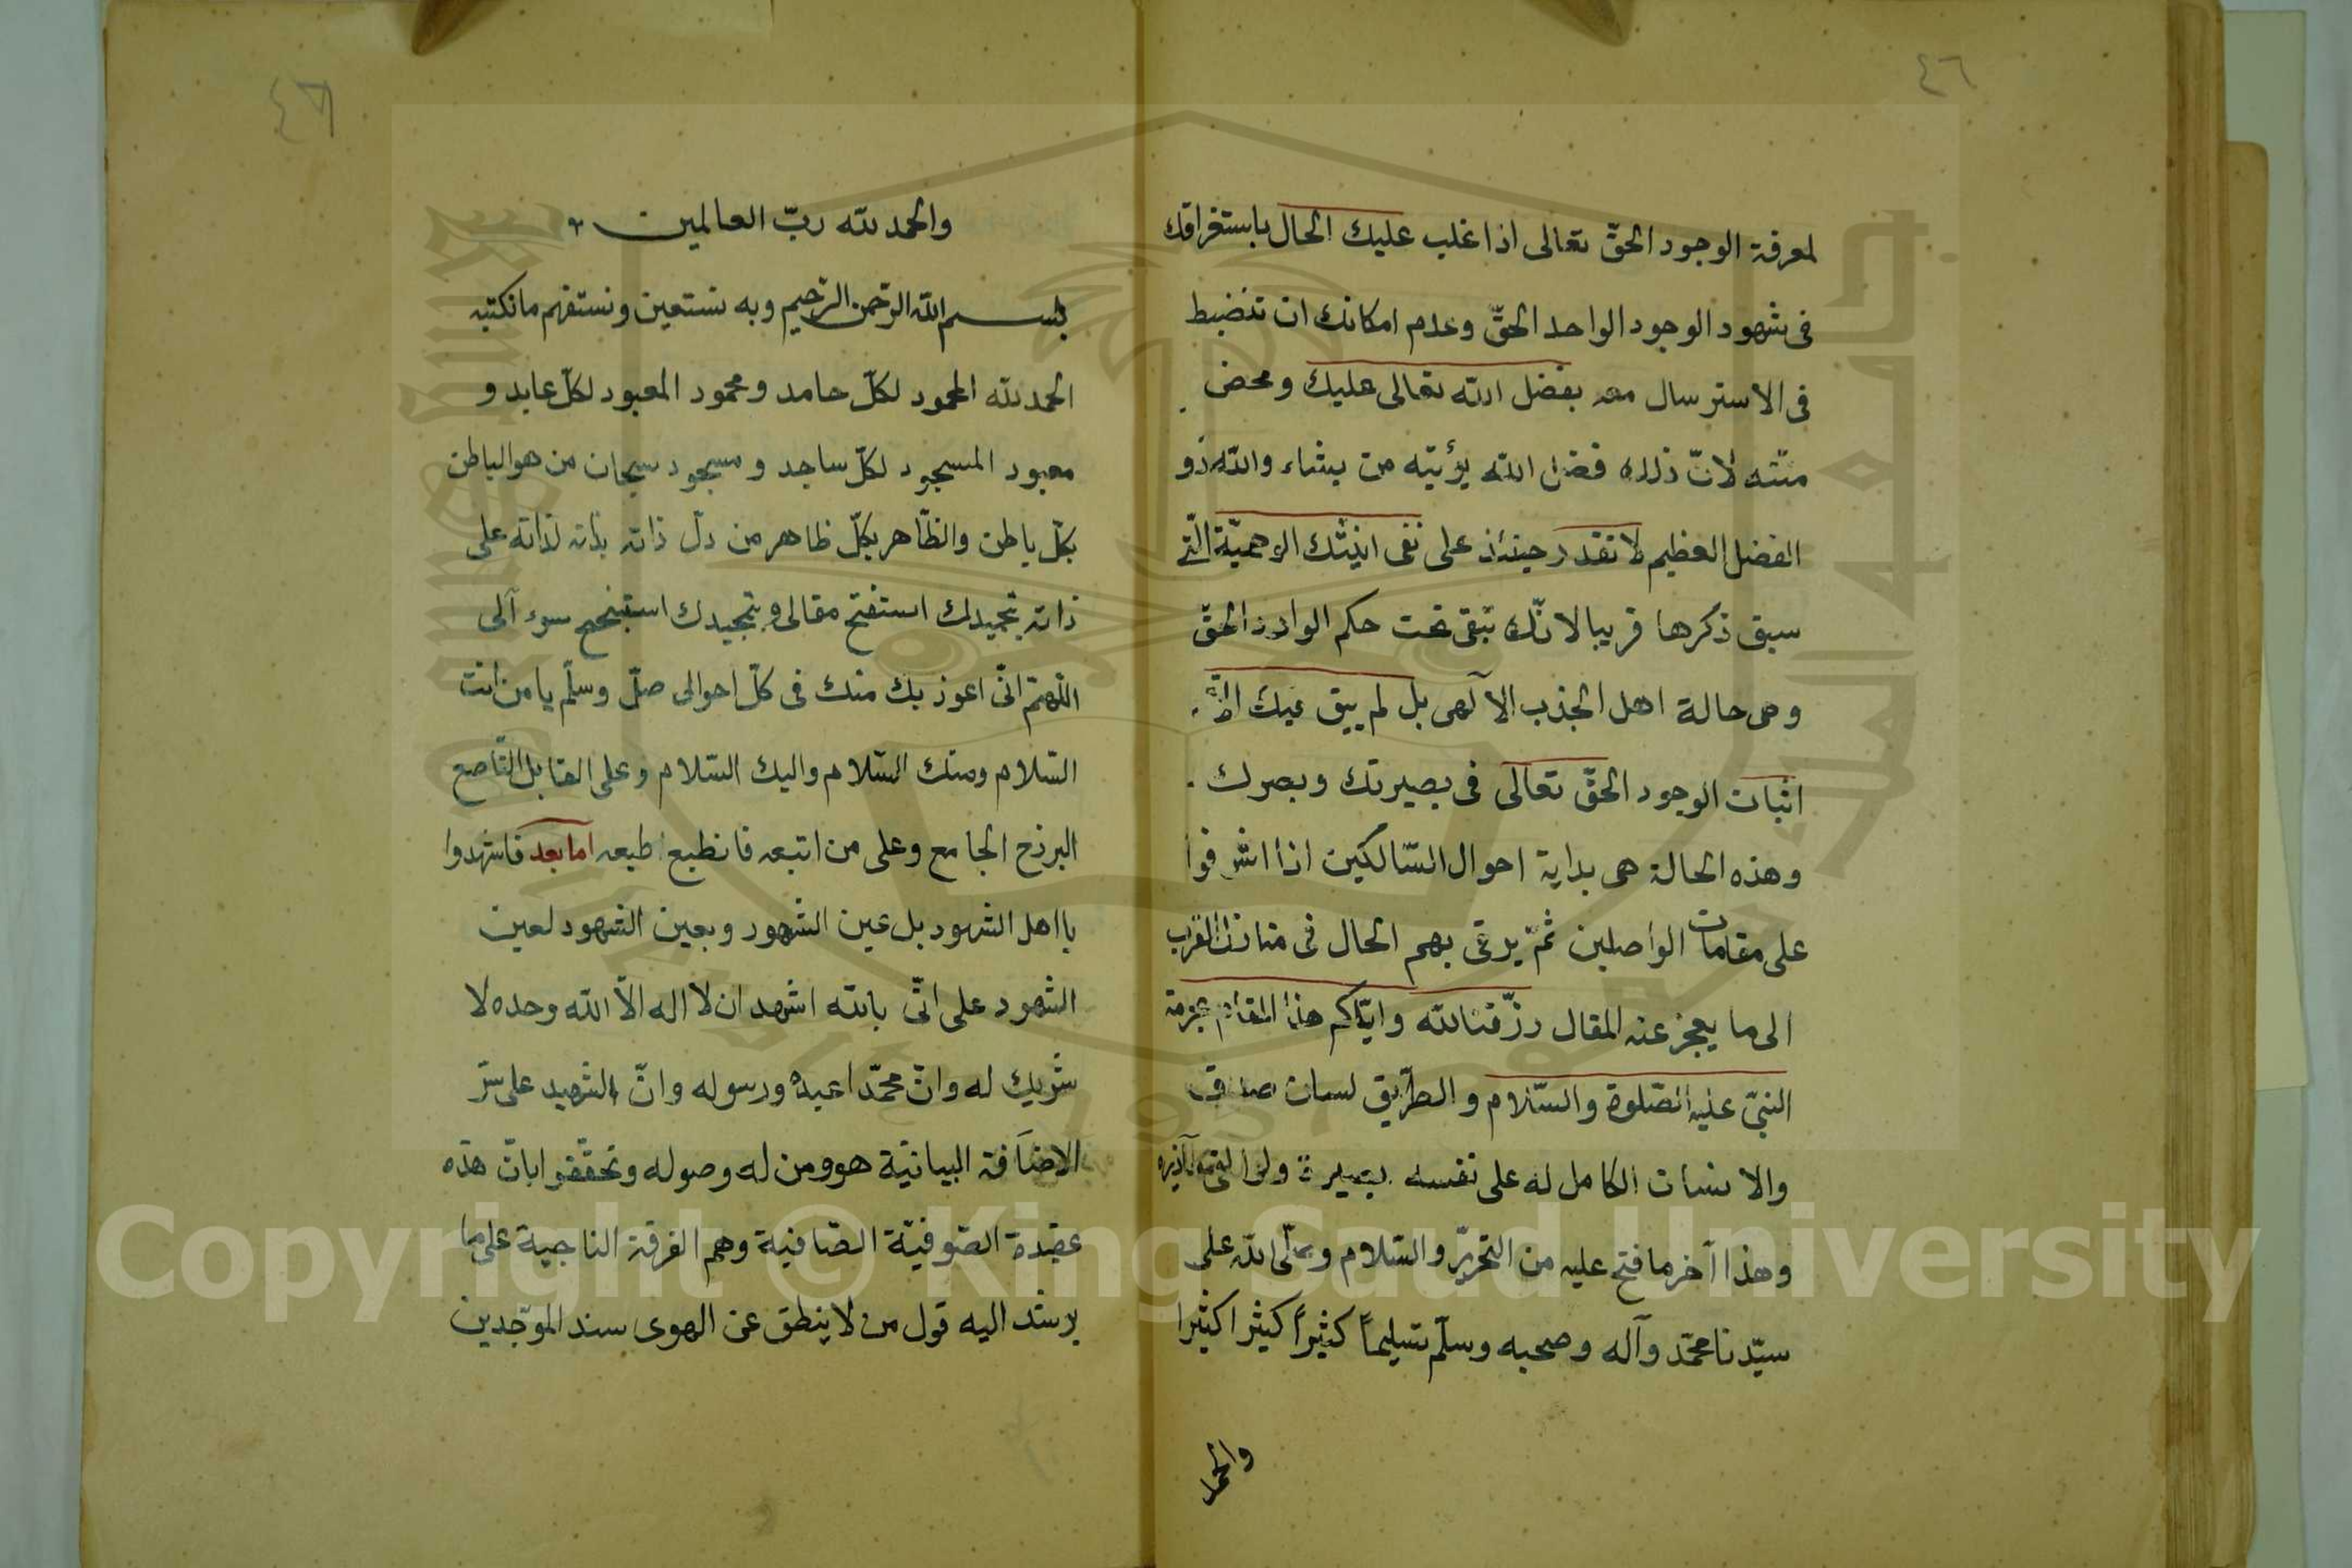 ٤٦
لمعرفة الوجود الحقّ تعالى اذا غلب عليك الحال باستغراقك
فى شهود الوجود الواحد الحقّ وعدم امكانك ان تنضبط
فى الاسترسال معه بفضل الله تعالى عليك ومحض
منّته لانّ ذلك فضل الله يؤتيه من يشاء والله ذو
الفضل العظيم لا تقدر حينئذ على نفى اينيّتك الوهميّة الّتى
سبق ذكرها قريبا لانّك تبقى تحت حكم الوارد الحقّ
وهى حالة اهل الجذب الآلهى بل لم يبق فيك الّا
اثبات الوجود الحقّ تعالى فى بصيرتك وبصرك
وهذه الحالة هى بداية احوال السّالكين اذا اشرفوا
على مقامات الواصلين ثمّ يرقى بهم الحال فى منازل القرب
الى ما يعجز عنه المقال رزّقنا الله وايّاكم هذا المقام بحرمة
النبىّ عليه الصّلوة والسّلام والطّريق لسان صدق
والانسان الكامل له على نفسه بصيرة ولو القى معاذيره
وهذا آخر ما فتح عليه من التحرير والسّلام وصلّى الله على
سيّدنا محمّد وآله وصحبه وسلّم تسليماً كثيراً كثيرا كثيرا
والحمد
٤٦
والحمد لله ربّ العالمين
بسم الله الرّحمن الرّحيم وبه نستعين ونستفهم ما نكتبه
الحمد لله المحمود لكلّ حامد ومحمود المعبود لكلّ عابد و
معبود المسجود لكلّ ساجد ومسجود سبحان من هو الباطن
بكلّ باطن والظّاهر بكلّ ظاهر من دلّ ذاته بذاته لذاته على
ذاته بتحميدك استفتح مقالى وبتمجيدك استنجح سوء آلى
اللّهمّ انّى اعوذ بك منك فى كلّ احوالى صلّ وسلّم يا من انت
السّلام ومنك السّلام واليك السّلام وعلى القابل النّاصع
البرزخ الجامع وعلى من اتبعه فانطبع طبعه اما بعد فاشهدوا
يا اهل الشهود بل عين الشهود وبعين الشهود لعين
الشهود على انّى بالله اشهد ان لا اله الّا الله وحده لا
شريك له وانّ محمّدا عبده ورسوله وانّ الشهيد على سرّ
الاضافة البيانيّة هو ومن له وصوله وتحقّقوا بانّ هذه
عقيدة الصّوفيّة الصّافية وهم الفرقة الناجية على ما
يرشد اليه قول من لا ينطق عن الهوى سند الموحّدين
Copyright © King Saud University